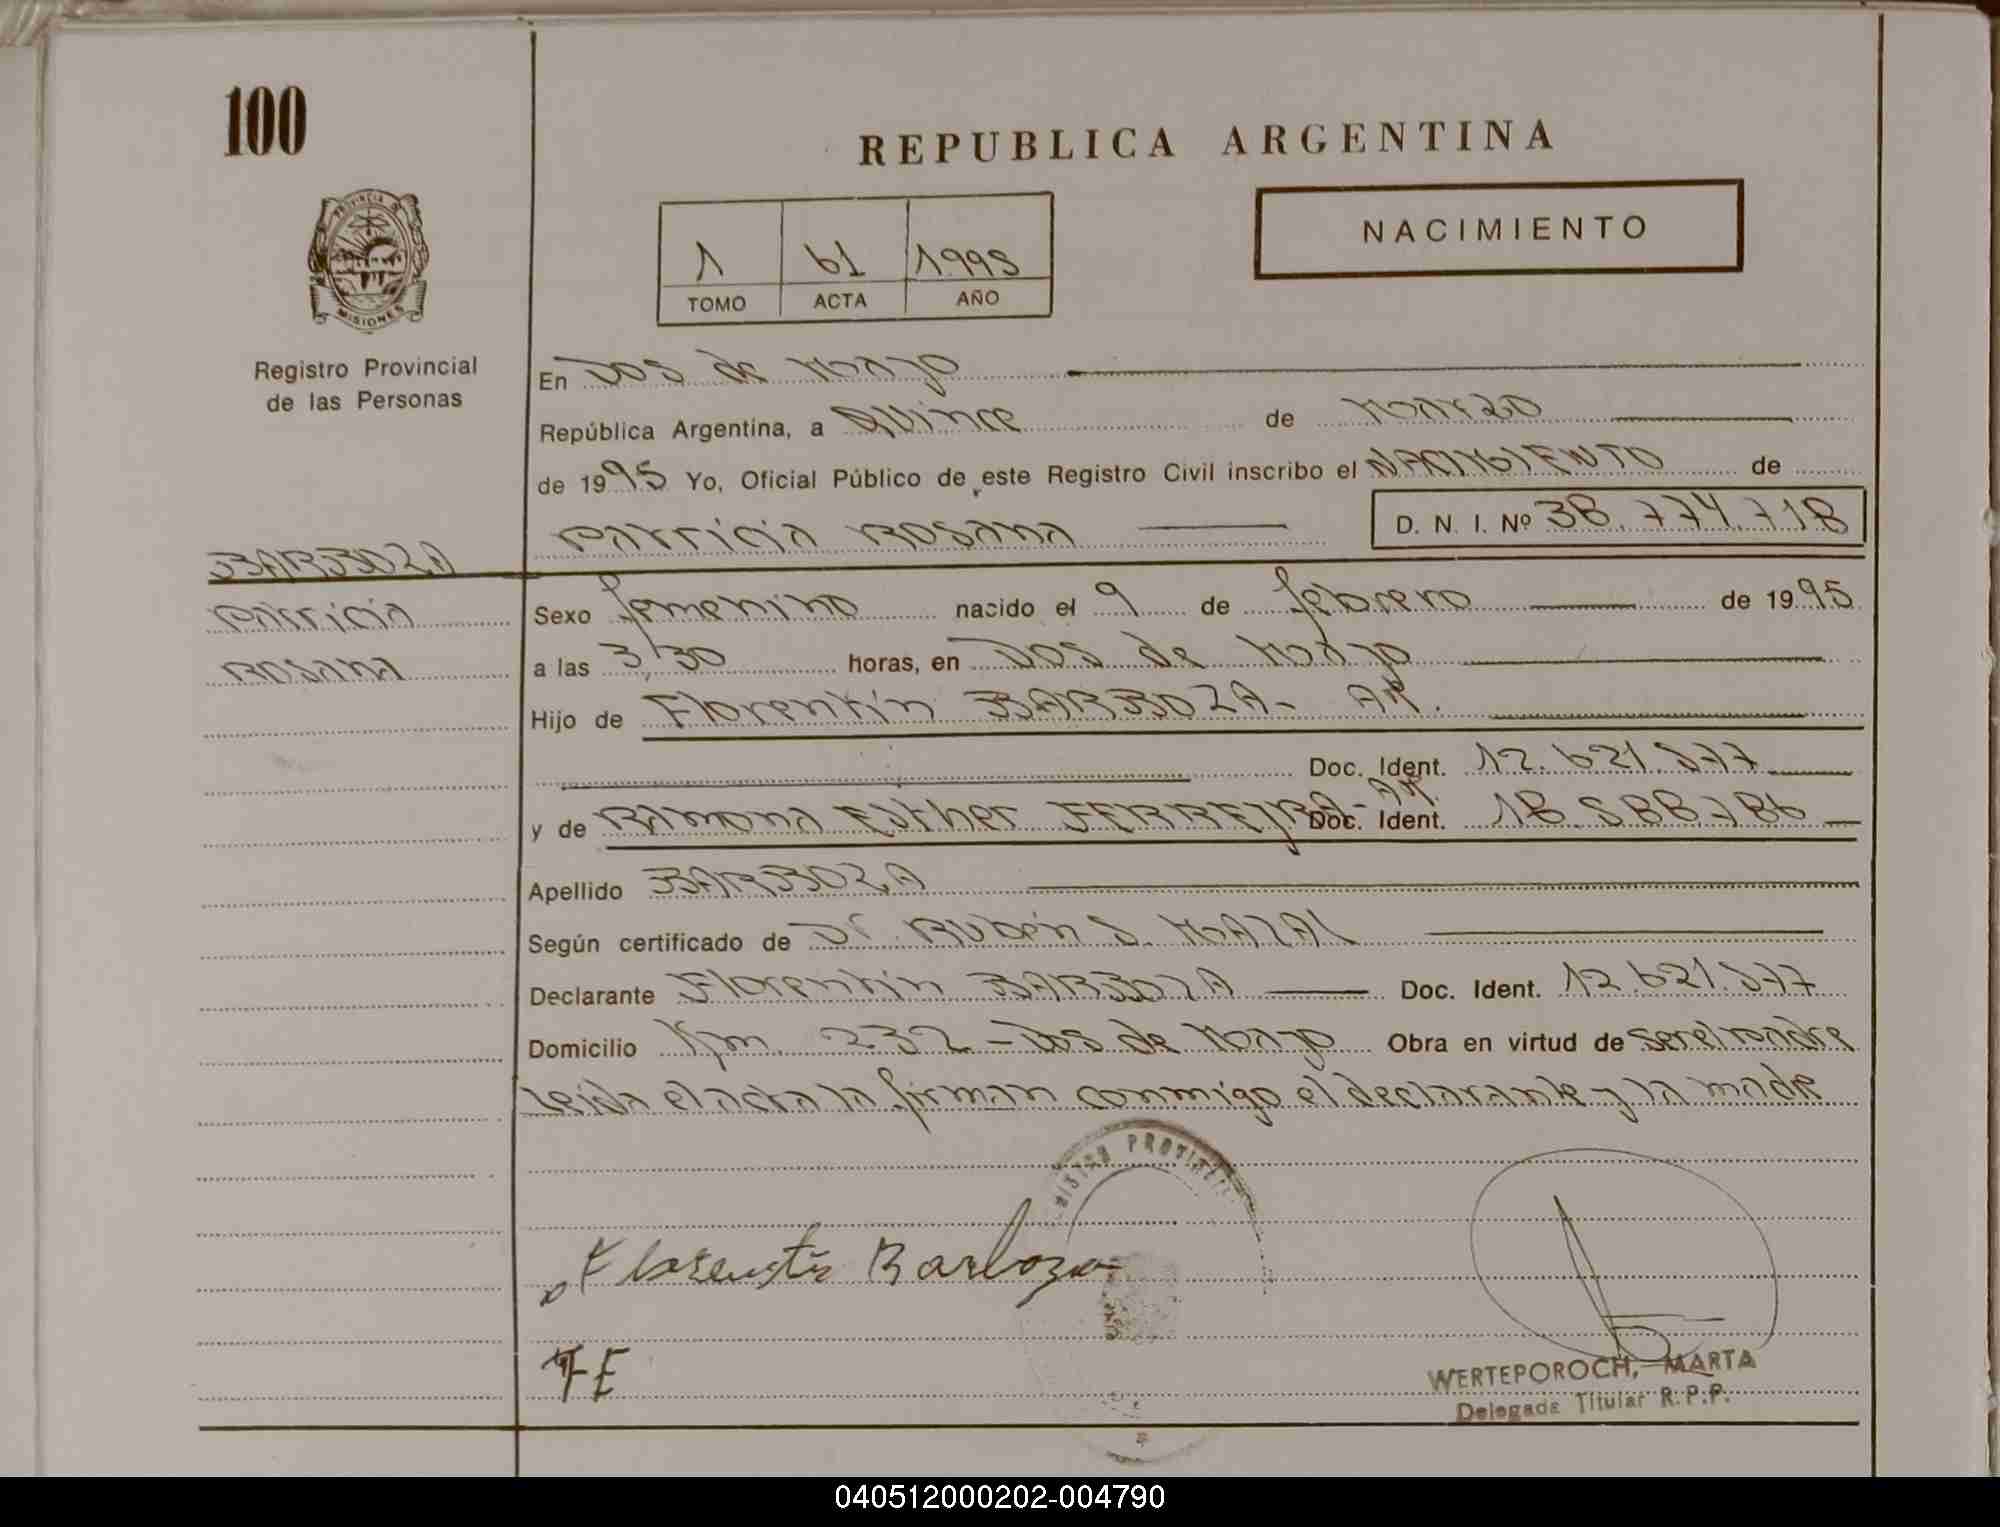 100
REPUBLICA ARGENTINA
PROVINCIA DE
MISIONES
1 61 1995
TOMO ACTA AÑO
NACIMIENTO
Registro Provincial
de las Personas
En Dos de Mayo
República Argentina, a Quince de Marzo
de 1995 Yo, Oficial Público de este Registro Civil inscribo el NACIMIENTO de
Patricia Rosana D. N. I. Nº 38.774.718
BARBOZA
Patricia
Rosana
Sexo femenino nacido el 9 de febrero de 1995
a las 3,30 horas, en Dos de Mayo
Hijo de Florentín BARBOZA- AR.
Doc. Ident. 12.621.577
y de Ramona Esther FERREYRA - AR. Doc. Ident. 18.588.786
Apellido BARBOZA
Según certificado de Dr. Rubén S. MAZAL
Declarante Florentín BARBOZA Doc. Ident. 12.621.577
Domicilio Km. 232 - Dos de Mayo Obra en virtud de ser el padre
Leida el acta la firman conmigo el declarante y la madre
REGISTRO PROVINCIAL
Florentin Barboza
FE
WERTEPOROCH, MARTA
Delegada Titular R.P.P.
040512000202-004790